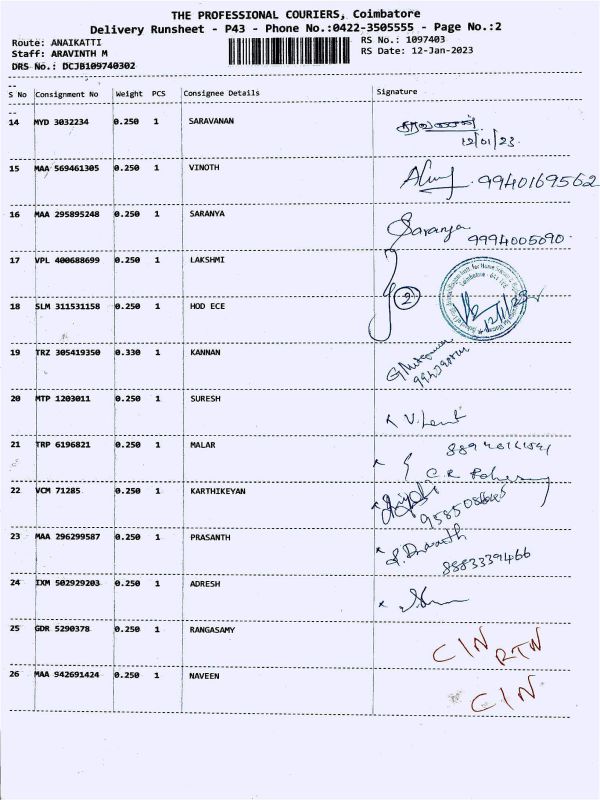 THE PROFESSIONAL COURIERS, Coimbatore
Delivery Runsheet - P43 - Phone No.:0422-3505555 - Page No.:2
Route: ANAIKATTI RS No.: 1097403
Staff: ARAVINTH M RS Date: 12-Jan-2023
DRS No.: DCJB109740302
S No Consignment No Weight PCS Consignee Details Signature
14 MYD 3032234 0.250 1 SARAVANAN
12/01/23
15 MAA 569461305 0.250 1 VINOTH 9940169562
16 MAA 295895248 0.250 1 SARANYA Saranya
9994005090
17 VPL 400688699 0.250 1 LAKSHMI
2
18 SLM 311531158 0.250 1 HOD ECE
19 TRZ 305419350 0.330 1 KANNAN
20 MTP 1203011 0.250 1 SURESH
21 TRP 6196821 0.250 1 MALAR
22 VCM 71285 0.250 1 KARTHIKEYAN
23 MAA 296299587 0.250 1 PRASANTH
8883339466
24 IXM 502929203 0.250 1 ADRESH
25 GDR 5290378 0.250 1 RANGASAMY CIN RTN
26 MAA 942691424 0.250 1 NAVEEN CIN